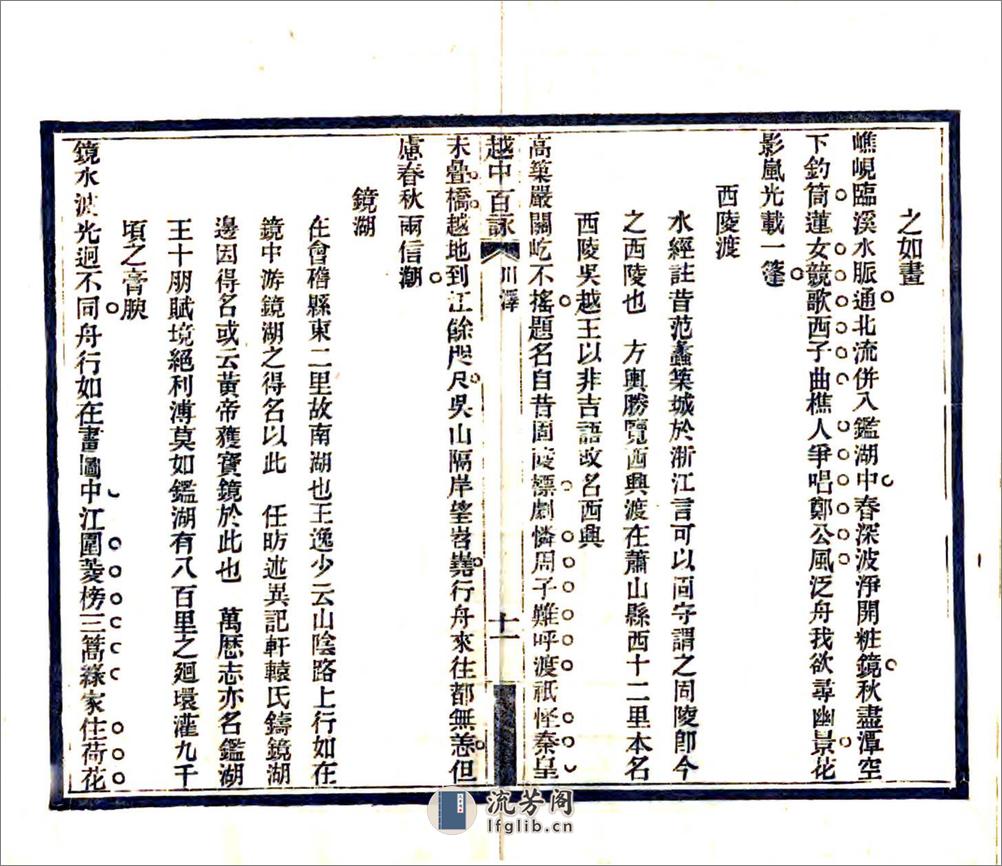 之如畫
嶕峴臨溪水脈通北流併入鑑湖中春深波淨開粧鏡秋盡潭空
下釣筒蓮女競歌西子曲樵人爭唱鄭公風泛舟我欲尋幽景花
影嵐光載一篷
西陵渡
水經註昔范蠡築城於浙江言可以固守謂之固陵卽今
之西陵也　方輿勝覽西興渡在蕭山縣西十二里本名
西陵吳越王以非吉語改名西興
高築嚴關屹不搖題名自昔固陵標劇憐周子難呼渡祇怪秦皇
越中百詠
川澤
十一
未疊橋越地到江餘咫尺吳山隔岸望岧嶤行舟來往都無恙但
慮春秋兩信潮
鏡湖
在會稽縣東二里故南湖也王逸少云山陰路上行如在
鏡中游鏡湖之得名以此　任昉述異記軒轅氏鑄鏡湖
邊因得名或云黃帝獲寶鏡於此也　萬歷志亦名鑑湖
王十朋賦境絕利溥莫如鑑湖有八百里之廻環灌九千
頃之膏腴
鏡水波光迥不同舟行如在畫圖中江圍菱榜三篙綠家住荷花
流芳阁
lfglib.cn